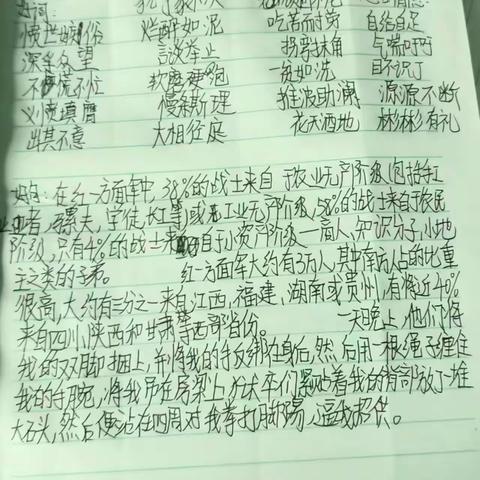 好词:
愤世嫉俗 烂醉如泥 吃苦而笑 自给自足
深孚众望 谈举止 拐弯抹角 气喘吁吁
不慌不忙 软磨硬泡 一贫如洗 目不识丁
义愤填膺 慢条斯理 推波助澜 源源不断
出其不意 大相径庭 花天酒地 彬彬有礼
好句:在红一方面军中,38%的战士来自于农业无产阶级(包括手工
业者、骡夫、学徒、长工等)或工业无产阶级,58%的战士来自于农民
阶级,只有4%的战士来自于小资产阶级—商人、知识分子、小地
主之类的子弟。 红一方面军大约有3万人,其中南方人占的比重
很高,大约有三分之一来自江西、福建、湖南或贵州,有将近40%
来自四川、陕西和甘肃等西部省份。 一天晚上,他们将
我的双脚捆上,并将我的手反绑在身后,然后用一根绳子缠住
我的手腕,将我吊在房梁上,狱卒们紧贴着我的背部放了一堆
大石头,然后便站在四周对我拳打脚踢,逼我招供。